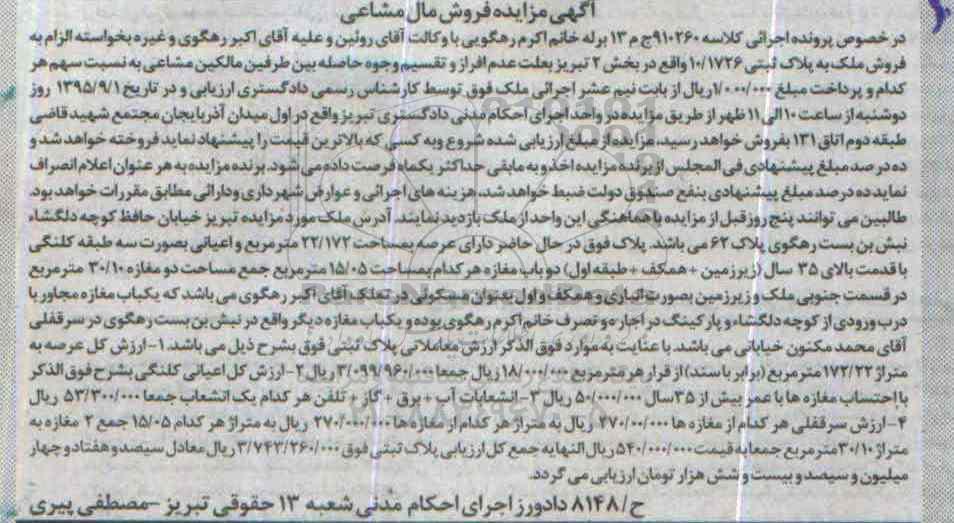 آگهی مزایده فروش مال مشاعی
در خصوص پرونده اجرائی کلاسه ۹۱۰۲۶۰ج م ۱۳ برله خانم اکرم رهگویی با وکالت آقای روئین و علیه آقای اکبر رهگوی و غیره بخواسته الزام به
فروش ملک به پلاک ثبتی ۱۰/۱۷۲۶ واقع در بخش ۲ تبریز بعلت عدم افراز و تقسیم وجوه حاصله بین طرفین مالکین مشاعی به نسبت سهم هر
کدام و پرداخت مبلغ ۱/۰۰۰/۰۰۰ریال از بابت نیم عشر اجرائی ملک فوق توسط کارشناس رسمی دادگستری ارزیابی و در تاریخ ۱۳۹۵/۹/۱ روز
دوشنبه از ساعت ۱۰ الی ۱۱ ظهر از طریق مزایده در واحد اجرای احکام مدنی دادگستری تبریز واقع در اول میدان آذربایجان مجتمع شهید قاضی
طبقه دوم اتاق ۱۳۱ بفروش خواهد رسید، مزایده از مبلغ ارزیابی شده شروع وبه کسی که بالاترین قیمت را پیشنهاد نماید فروخته خواهد شد و
ده در صد مبلغ پیشنهادی فی المجلس از برنده مزایده اخذ و به مابقی حداکثر یکماه فرصت داده می شود. برنده مزایده به هر عنوان اعلام انصراف
نماید ده درصد مبلغ پیشنهادی بنفع صندوق دولت ضبط خواهد شد، هزینه های اجرائی و عوارض شهرداری ودارائی مطابق مقررات خواهد بود.
طالبین می توانند پنج روز قبل از مزایده با هماهنگی این واحد از ملک بازدید نمایند. آدرس ملک مورد مزایده تبریز خیابان حافظ کوچه دلگشاه
نبش بن بست رهگوی پلاک ۶۲ می باشد. پلاک فوق در حال حاضر دارای عرصه بمساحت ۲۲/۱۷۲ مترمربع و اعیانی بصورت سه طبقه کلنگی
با قدمت بالای ۳۵ سال (زیرزمین +همکف +طبقه اول) دو باب مغازه هر کدام بمساحت ۱۵/۰۵ مترمربع جمع مساحت دو مغازه ۳۰/۱۰ مترمربع
در قسمت جنوبی ملک و زیرزمین بصورت انباری و همکف و اول بعنوان مسکونی در تملک آقای اکبر رهگوی می باشد که یکباب مغازه مجاور با
درب ورودی از کوچه دلگشاه و پارکینگ در اجاره و تصرف خانم اکرم رهگوی بوده و یکباب مغازه دیگر واقع در نبش بن بست رهگوی در سرقفلی
آقای محمد مکنون خیابانی می باشد. با عنایت به موارد فوق الذکر ارزش معاملاتی پلاک ثبتی فوق بشرح ذیل می باشد. ۱-ارزش کل عرصه به
متراژ ۱۷۲/۲۲ متر مربع (برابر با سند) از قرار هر متر مربع ۱۸/۰۰۰/۰۰۰ ریال جمعا ۳/۰۹۹/۹۶۰/۰۰۰ ریال ۲-ارزش کل اعیانی کلنگی بشرح فوق الذکر
با احتساب مغازه ها با عمر بیش از ۳۵سال ۵۰/۰۰۰/۰۰۰ ریال ۳-انشعابات آب + برق + گاز+ تلفن هر کدام یک انشعاب جمعا ۵۳/۳۰۰/۰۰۰ ریال
۴-ارزش سرقفلی هر کدام از مغازه ها ۲۷۰/۰۰/۰۰۰ ریال به متراژ هر کدام از مغازه ها ۲۷۰/۰۰۰/۰۰۰ ریال به متراژ هر کدام ۱۵/۰۵ جمع ۲ مغازه به
متراژ ۳۰/۱۰ متر مربع جمعا به قیمت ۵۴۰/۰۰۰/۰۰۰ ریال النهایه جمع کل ارزیابی پلاک ثبتی فوق ۳/۷۴۳/۲۶۰/۰۰۰ ریال معادل سیصد و هفتاد و چهار
میلیون و سیصد و بیست و شش هزار تومان ارزیابی می گردد.
ح/۸۱۴۸ دادورز اجرای احکام مدنی شعبه ۱۳ حقوقی تبریز -مصطفی پیری